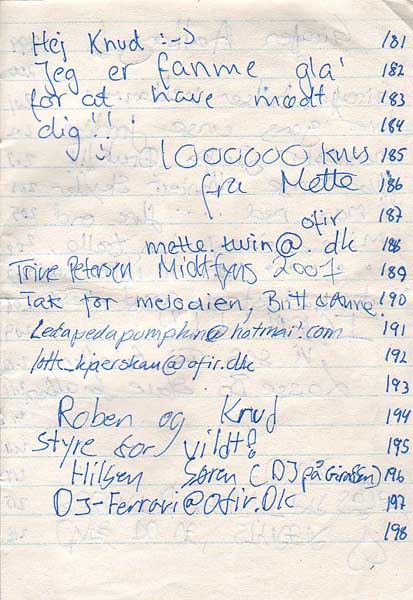 Hej Knud :-) 181
Jeg er fanme gla' 182
for at have mødt 183
dig!! 184
1000000 knus 185
fra Mette 186
ofir 187
mette.twin@.dk 188
Trine Petersen Midtfyns 2001 189
Tak for melodien, Britt & Anne! 190
Ledapedapumpkin@hotmail.com 191
lotte_kjaerskau@ofir.dk 192
193
Roben og Knud 194
styre for vildt! 195
Hilsen Søren (DJ på Giraffen) 196
DJ-Ferrari@ofir.Dk 197
198